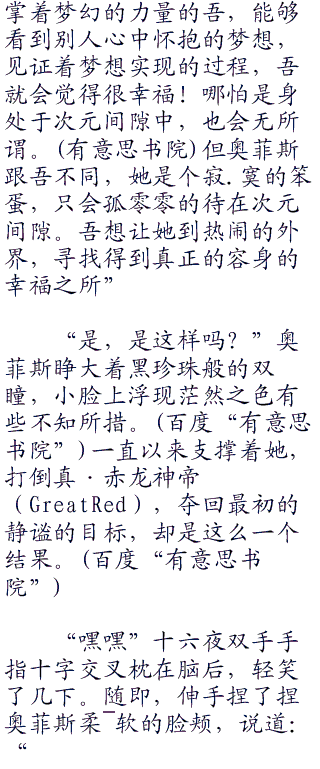 掌着梦幻的力量的吾，能够
看到别人心中怀抱的梦想，
见证着梦想实现的过程，吾
就会觉得很幸福！哪怕是身
处于次元间隙中，也会无所
谓。(有意思书院)但奥菲斯
跟吾不同，她是个寂.寞的笨
蛋，只会孤零零的待在次元
间隙。吾想让她到热闹的外
界，寻找得到真正的容身的
幸福之所”
“是，是这样吗？”奥
菲斯睁大着黑珍珠般的双
瞳，小脸上浮现茫然之色有
些不知所措。(百度“有意思
书院”)一直以来支撑着她，
打倒真·赤龙神帝
（GreatRed），夺回最初的
静谧的目标，却是这么一个
结果。(百度“有意思书
院”)
“嘿嘿”十六夜双手手
指十字交叉枕在脑后，轻笑
了几下。随即，伸手捏了捏
奥菲斯柔¯软的脸颊，说道：
“